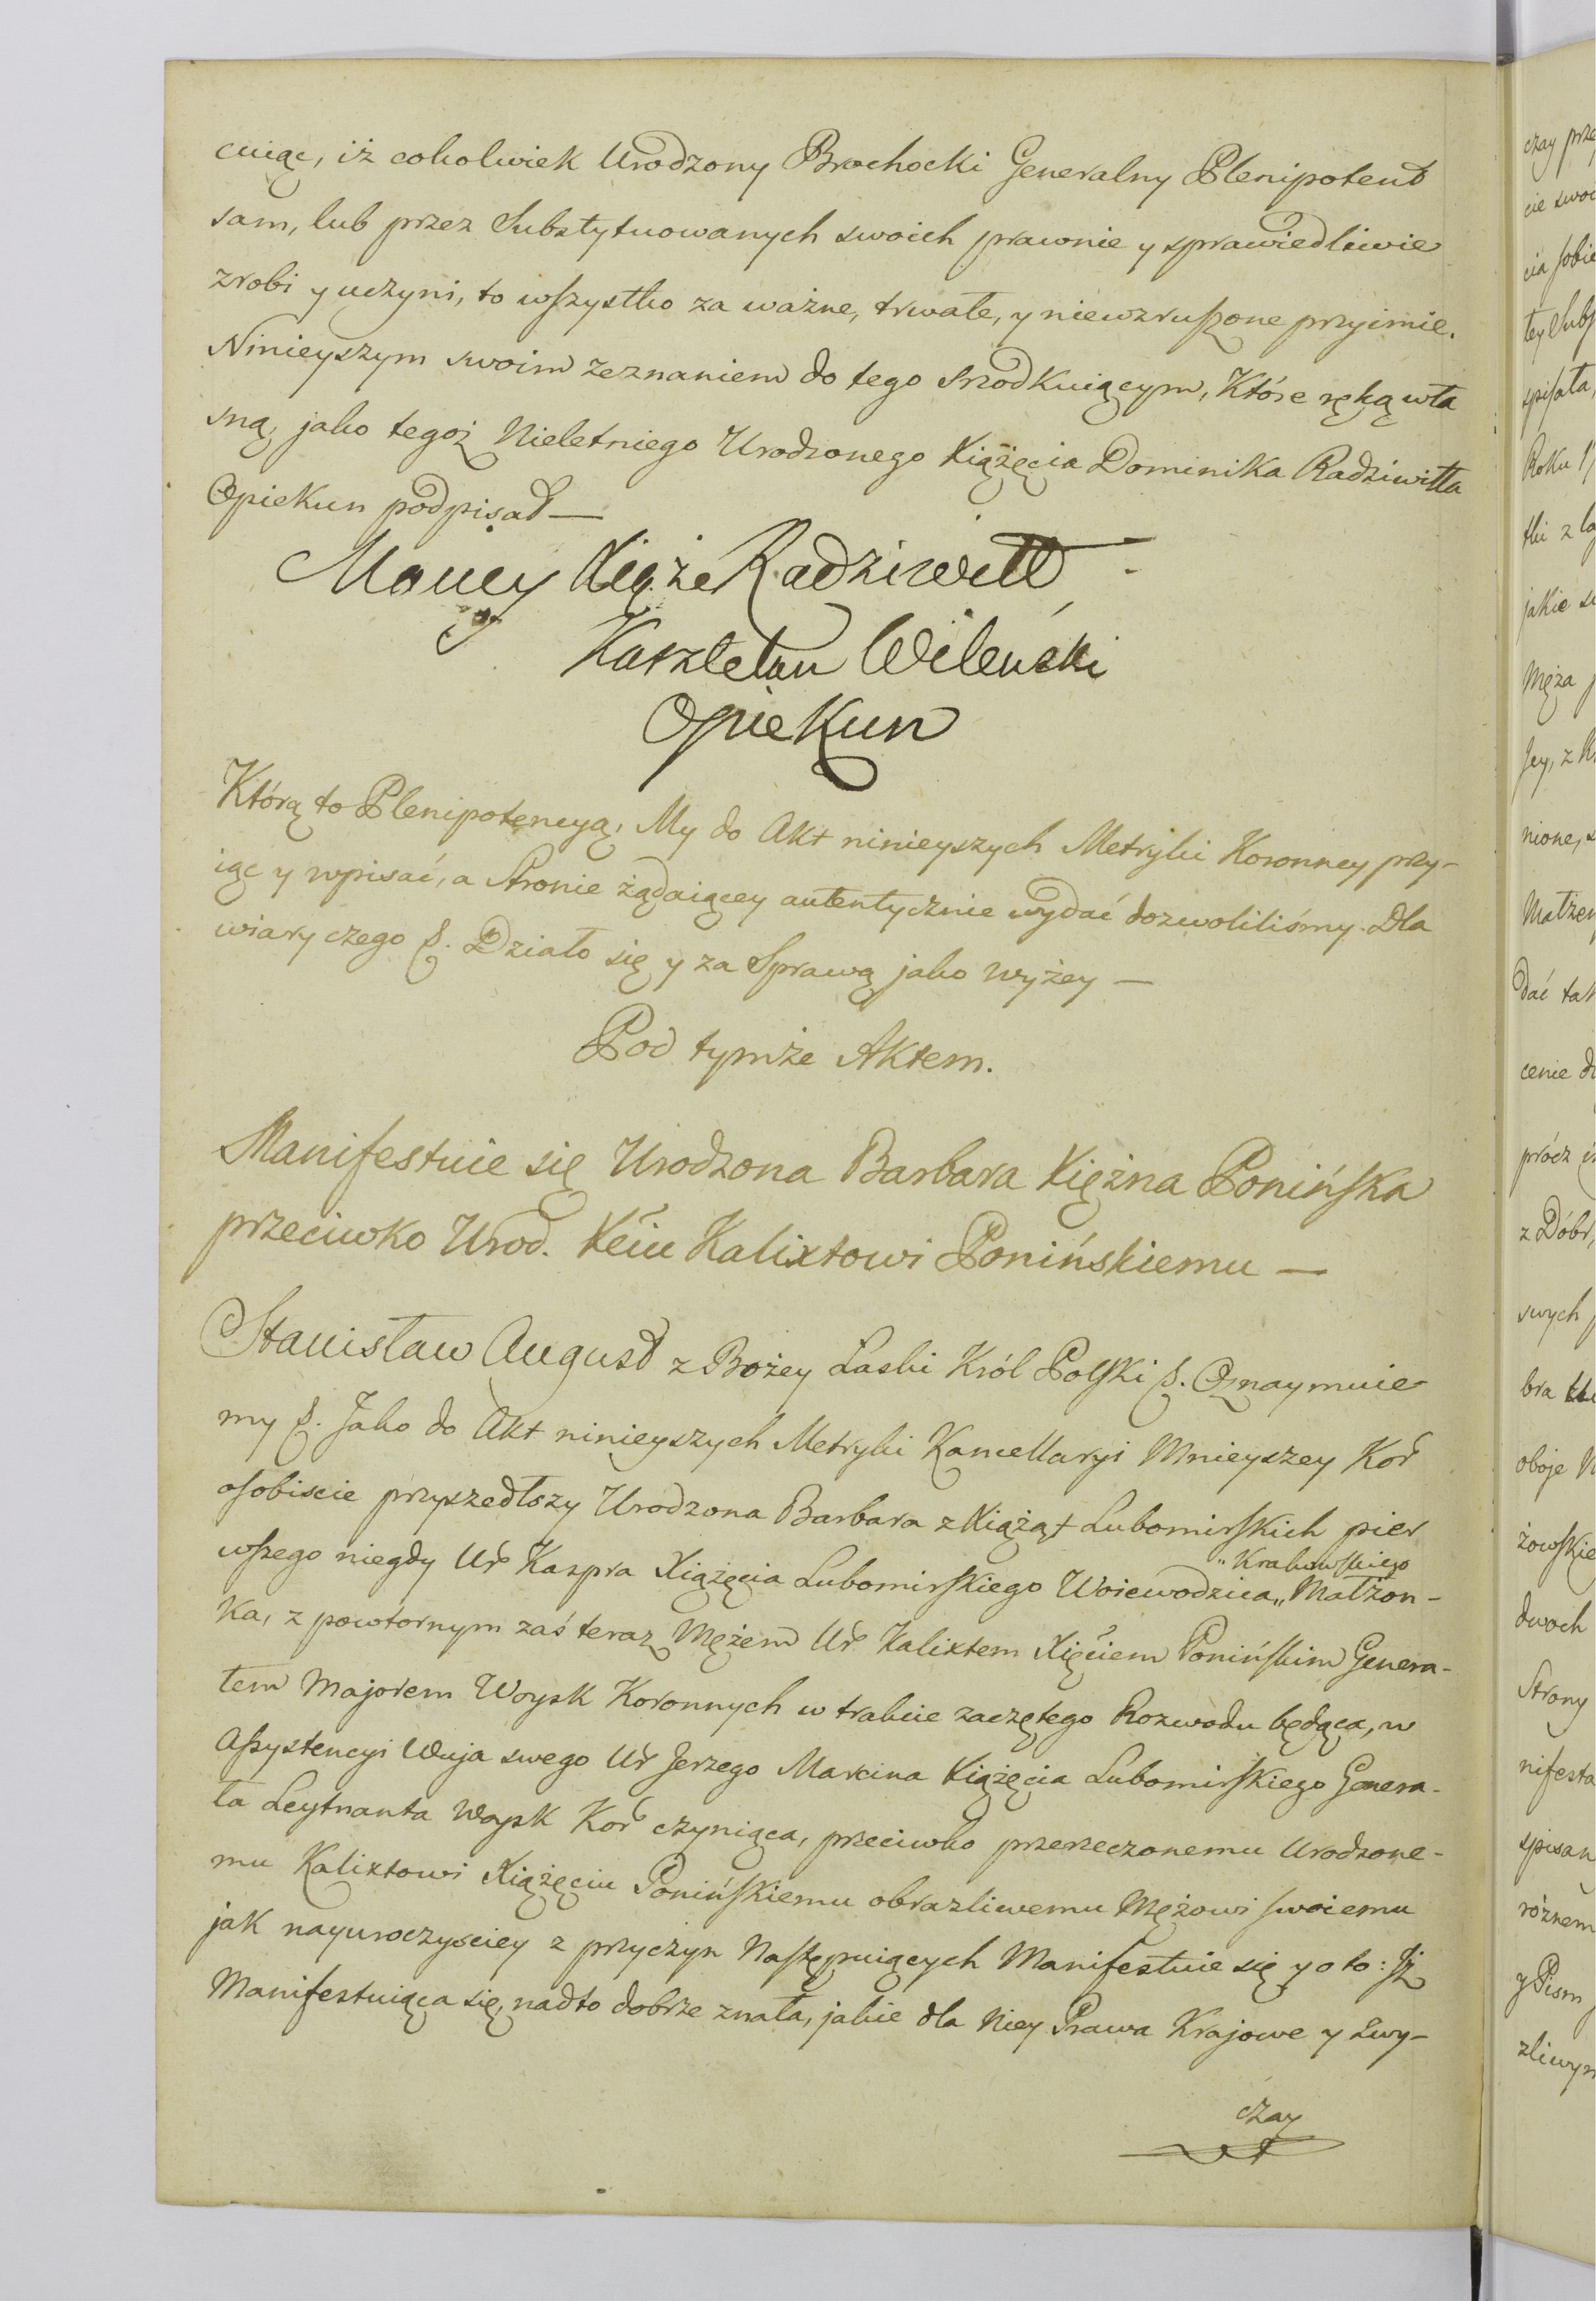 cuiąc, iż cokolwiek Urodzony Brochocki Generalny Plenipotent
sam, lub przez Substytuowanych swoich prawnie y sprawiedliwie
zrobi y uczyni, to wszystko za ważne, trwałe, y niewzruszone przyimie.
Ninieyszym swoim zeznaniem do tego srzodkuiącym, Które ręką wła
sną, jako tegoż Nieletniego Urodzonego Xiążęcia Dominika Radziwiłła
Opiekun podpisał —
Maciey Xiąże Radziwiłł
Kasztelan Wileński
Opiekun
Którą to Plenipotencyą, My do Akt ninieyszych Metryki Koronney przy-
iąc y wpisać, a Stronie żądaiącey autentycznie wydać dozwoliliśmy. Dla
wiary czego &. Działo się y za Sprawą jako wyżey —
Pod tymże Aktem.
Manifestuie się Urodzona Barbara Xiężna Ponińska
przeciwko Urod. Xciu Kalixtowi Ponińskiemu —
Stanisław August z Bożey Łaski Król Polski &. Oznaymuie-
my &. Jako do Akt ninieyszych Metryki Kancellaryi Mnieyszey Kor
osobiscie przyszedłszy Urodzona Barbara z Xiążąt Lubomirskich pier
wszego niegdy Ur Kaspra Xiążęcia Lubomirskiego Woiewodzica „ Małżon-
„ Krakowskiego
ka, z powtórnym zaś teraz Mężem Ur Kalixtem Xięciem Ponińskim Genera-
łem Majorem Woysk Koronnych w trakcie zaczętego Rozwodu będąca, w
Assystencyi Wuja swego Ur Jerzego Marcina Xiążęcia Lubomirskiego Genera-
ła Leytnanta Woysk Kor czyniąca, przeciwko przerzeczonemu Urodzone-
mu Kalixtowi Xiążęciu Ponińskiemu obrazliwemu Mężowi swoiemu
jak nayuroczysciey z przyczyn Następuiących Manifestuie się y o to: Jż
Manifestuiąca się, nadto dobrze znała, jakie dla Niey Prawa Krajowe y Zwy-
czay
czay prze
cie swoi
cia sobie
tey Subs
spisała,
Roku 1
jakie s
Męża p
Jey, z K
nione, s
Małżeń
dać tak
cenie d
prócz i
z Dóbr,
swych p
bra
oboje N
żowskie
dwoch
Strony
nifesta
spisan
różnem
y Pism
zliwym